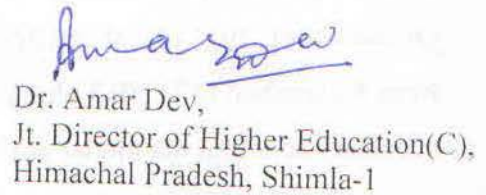 Dr. Amar Dev,
Jt. Director of Higher Education(C),
Himachal Pradesh, Shimla-1